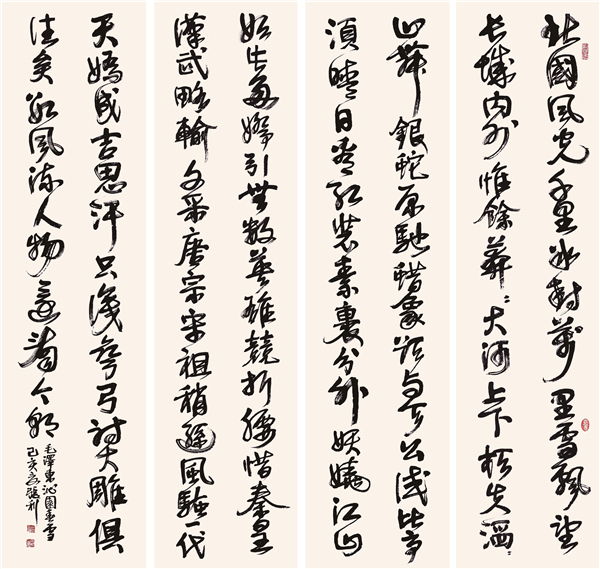 北國風光千里冰封萬里雪飄望
長城内外惟餘莽々大河上下頓失滔々
山舞銀蛇原馳蜡象欲與天公試比高
須晴日看紅裝素裹分外妖嬈江山
如此多嬌引無數英雄競折腰惜秦皇
漢武略輸文采唐宗宋祖稍遜風騷一代
天嬌成吉思汗只識彎弓射大雕俱
往矣數風流人物還看今朝
毛澤東沁園春雪
己亥